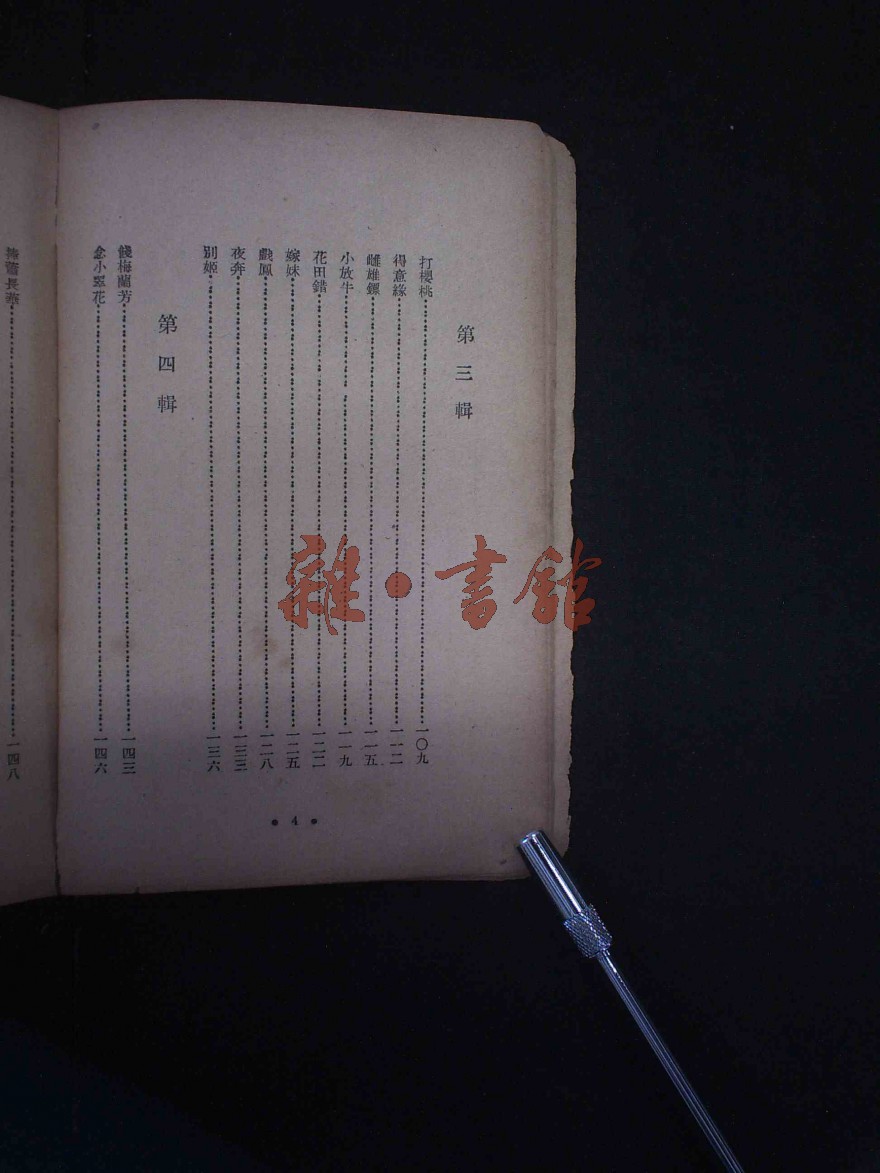 第三輯
打櫻桃……一〇九
得意緣……一一二
雌雄鏢……一一五
小放牛……一一九
花田錯……一二二
嫁妹……一二五
戲鳳……一二八
夜奔……一三三
別姬……一三六
第四輯
餞梅蘭芳……一四三
念小翠花……一四六
• 4 •
捧蕭長華……一四八
雜•書館